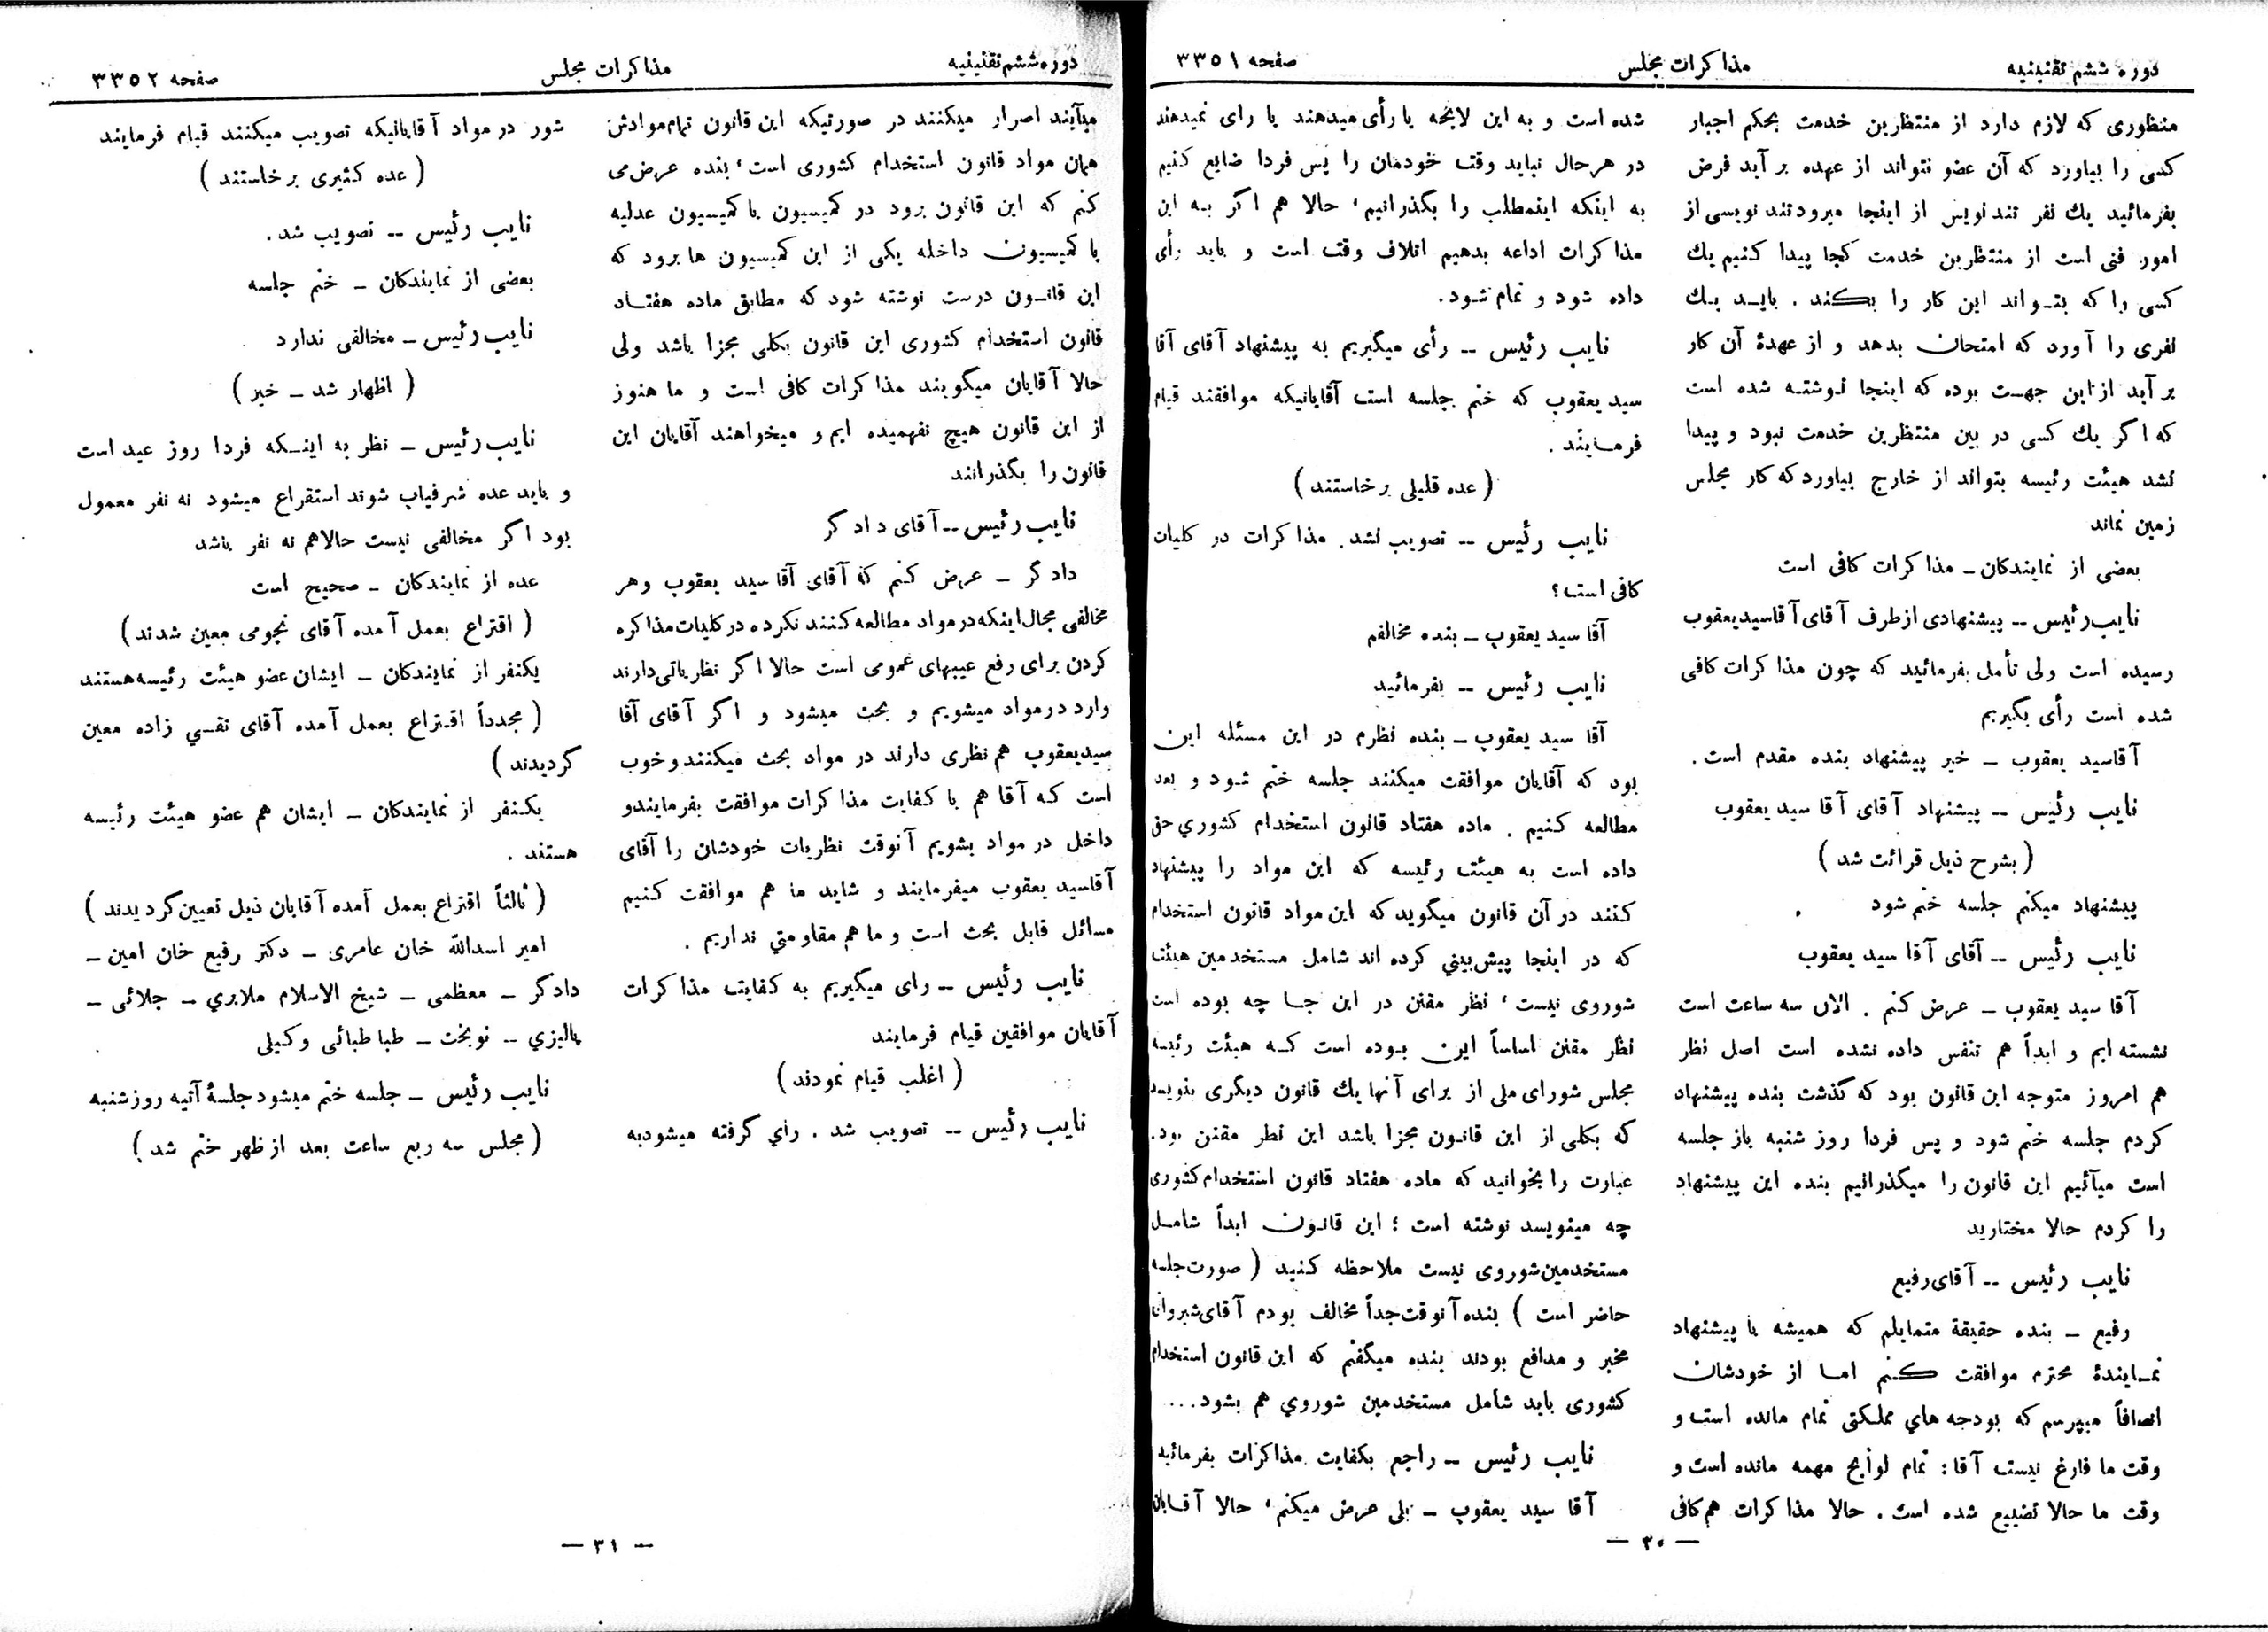 دوره ششم تقنینیه
مذاکرات مجلس
صفحه ۳۳۵۱
منظوری که لازم دارد از منتظرین خدمت بحکم اجبار
کسی را بیاورد که آن عضو نتواند از عهده بر آید فرض
بفرمائید یك نفر تندنویس از اینجا میرود تندنویسی از
امور فنی است از منتظرین خدمت کجا پیدا کنیم یك
کسی را که بتواند این کار را بکند . باید یك
نفری را آورد که امتحان بدهد و از عهدهٔ آن کار
بر آید از این جهت بوده که اینجا نوشته شده است
که اگر یك کسی در بین منتظرین خدمت نبود و پیدا
نشد هیئت رئیسه بتواند از خارج بیاورد که کار مجلس
زمین نماند
بعضی از نمایندکان ـ مذاکرات کافی است
نایب رئیس ــ پیشنهادی ازطرف آقای آقاسیدیعقوب
رسیده است ولی تأمل بفرمائید که چون مذاکرات کافی
شده است رأی بگیریم
آقاسید یعقوب ـ خیر پیشنهاد بنده مقدم است .
نایب رئیس ــ پیشنهاد آقای آقا سید یعقوب
( بشرح ذیل قرائت شد )
پیشنهاد میکنم جلسه ختم شود
نایب رئیس ــ آقای آقا سید یعقوب
آقا سید یعقوب ـ عرض کنم . الان سه ساعت است
نشسته ایم و ابداً هم تنفس داده نشده است اصل نظر
هم امروز متوجه این قانون بود که گذشت بنده پیشنهاد
کردم جلسه ختم شود و پس فردا روز شنبه باز جلسه
است میآئیم این قانون را میگذرانیم بنده این پیشنهاد
را کردم حالا مختارید
نایب رئیس ــ آقای رفیع
رفیع ـ بنده حقیقة متمایلم که همیشه با پیشنهاد
نمایندهٔ محترم موافقت کنم اما از خودشان
انصافاً میپرسم که بودجه های مملکتی تمام مانده است و
وقت ما فارغ نیست آقا : تمام لوایح مهمه مانده است و
وقت ما حالا تضییع شده است . حالا مذاکرات هم کافی
شده است و به این لایحه یا رأی میدهند یا رای نمیدهند
در هر حال نباید وقت خودمان را پس فردا ضایع کنیم
به اینکه اینمطلب را بگذرانیم ، حالا هم اگر به این
مذاکرات اداعه بدهیم اتلاف وقت است و باید رأی
داده شود و تمام شود .
نایب رئیس ــ رأی میگیریم به پیشنهاد آقای آقا
سید یعقوب که ختم جلسه است آقایانیکه موافقند قیام
فرمایند .
( عده قلیلی برخاستند )
نایب رئیس ــ تصویب نشد . مذاکرات در کلیات
کافی است ؟
آقا سید یعقوب ـ بنده مخالفم
نایب رئیس ــ بفرمائید
آقا سید یعقوب ـ بنده نظرم در این مسئله این
بود که آقایان موافقت میکنند جلسه ختم شود و بعد
مطالعه کنیم . ماده هفتاد قانون استخدام کشوري حق
داده است به هیئت رئیسه که این مواد را پیشنهاد
کنند در آن قانون میگوید که این مواد قانون استخدام
که در اینجا پیش بیني کرده اند شامل مستخدمین هیئت
شوروی نیست ، نظر مقنن در این جا چه بوده است
نظر مقنن اساساً این بوده است که هیئت رئیسه
مجلس شورای ملی از برای آنها یك قانون دیگری بنویسد
که بکلی از این قانون مجزا باشد این نظر مقنن بود .
عبارت را بخوانید که ماده هفتاد قانون استخدام کشوری
چه مینویسد نوشته است ؛ این قانون ابداً شامل
مستخدمین شوروی نیست ملاحظه کنید ( صورت جلسه
حاضر است ) بنده آنوقت جداً مخالف بودم آقای شیروانی
مخبر و مدافع بودند بنده میگفتم که این قانون استخدام
کشوری باید شامل مستخدمین شوروي هم بشود ...
نایب رئیس ــ راجع بکفایت مذاکرات بفرمائید
آقا سید یعقوب ـ بلی عرض میکنم ، حالا آقایان
— ۳۰ —
دوره ششم تقنینیه
مذاکرات مجلس
صفحه ۳۳۵۲
میآیند اصرار میکنند در صورتیکه این قانون تمام موادش
همان مواد قانون استخدام کشوری است ، بنده عرض می
کنم که این قانون برود در کمیسیون یا کمیسیون عدلیه
یا کمیسیون داخله یکی از این کمیسیون ها برود که
این قانون درست نوشته شود که مطابق ماده هفتاد
قانون استخدام کشوری این قانون بکلی مجزا باشد ولی
حالا آقایان میگویند مذاکرات کافی است و ما هنوز
از این قانون هیچ نفهمیده ایم و میخواهند آقایان این
قانون را بگذرانند
نایب رئیس ــ آقای دادگر
دادگر ـ عرض کنم که آقای آقا سید یعقوب وهر
مخالفی مجال اینکه در مواد مطالعه کنند نکرده در کلیات مذاکره
کردن برای رفع عیبهای عمومی است حالا اگر نظریاتی دارند
وارد در مواد میشویم و بحث میشود و اگر آقای آقا
سیدیعقوب هم نظری دارند در مواد بحث میکنند و خوب
است که آقا هم با کفایت مذاکرات موافقت بفرمایندو
داخل در مواد بشویم آنوقت نظریات خودشان را آقای
آقاسید یعقوب میفرمایند و شاید ما هم موافقت کنیم
مسائل قابل بحث است و ما هم مقاومتي نداریم .
نایب رئیس ــ رای میگیریم به کفایت مذاکرات
آقایان موافقین قیام فرمایند
( اغلب قیام نمودند )
نایب رئیس ــ تصویب شد . رأي گرفته میشودبه
شور در مواد آقایانیکه تصویب میکنند قیام فرمایند
( عده کثیری برخاستند )
نایب رئیس ــ تصویب شد .
بعضی از نمایندکان ـ ختم جلسه
نایب رئیس ـ مخالفی ندارد
( اظهار شد ـ خیر )
نایب رئیس ـ نظر به اینکه فردا روز عید است
و باید عده شرفیاب شوند استقراع میشود نه نفر معمول
بود اگر مخالفی نیست حالاهم نه نفر باشد
عده از نمایندکان ـ صحیح است
( اقتراع بعمل آمده آقای نجومی معین شدند )
یکنفر از نمایندکان ـ ایشان عضو هیئت رئیسه هستند
( مجدداً اقتراع بعمل آمده آقای تقي زاده معین
گردیدند )
یکنفر از نمایندکان ـ ایشان هم عضو هیئت رئیسه
هستند .
( ثالثاً اقتراع بعمل آمده آقایان ذیل تعیین گردیدند )
امیر اسدالله خان عامری ـ دکتر رفیع خان امین ـ
دادکر ـ معظمی ـ شیخ الاسلام ملایري ـ جلائی ـ
پالیزي ـ نوبخت ـ طباطبائی وکیلی
نایب رئیس ـ جلسه ختم میشود جلسهٔ آتیه روز شنبه
( مجلس سه ربع ساعت بعد از ظهر ختم شد )
— ۳۱ —